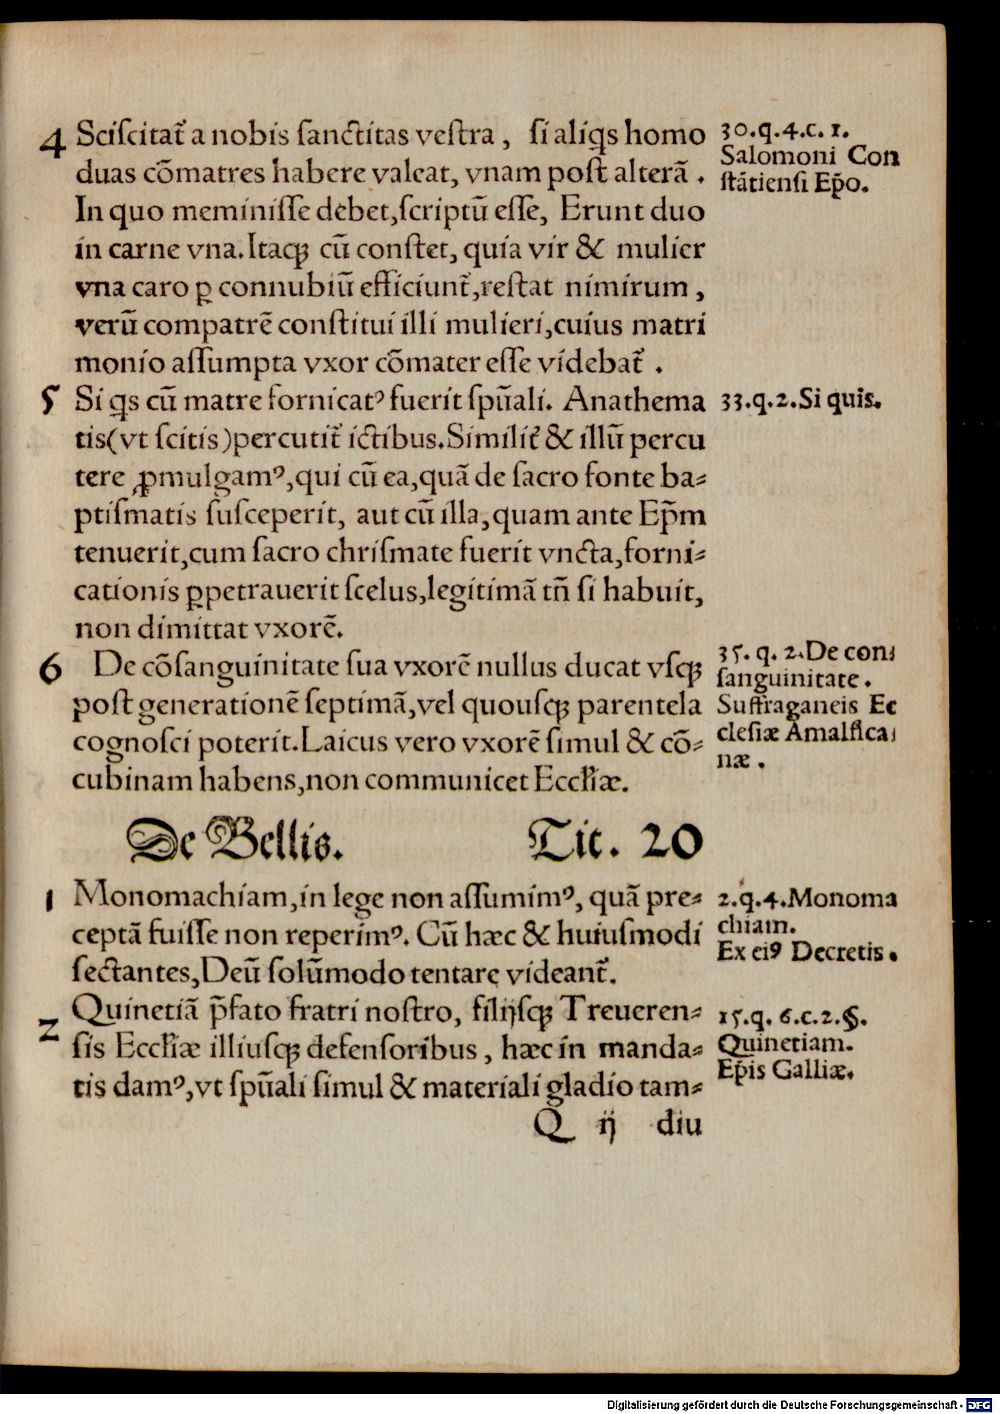 4 Sciſcitat᷑ a nobis ſanctitas veſtra, ſi aliq̃s homo
duas cõmatres habere valeat, vnam poſt alterã.
In quo meminiſſe debet, ſcriptũ eſſe, Erunt duo
in carne vna. Itaqꝫ cũ conſtet, quia vir & mulier
vna caro ꝑ connubiũ efficiunt᷑, reſtat nimirum,
verũ compatrẽ conſtitui illi mulieri, cuius matri
monio aſſumpta vxor cõmater eſſe videbat᷑.
30.q.4.c.1.
Salomoni Con
ſtãtienſi Ep̃o.
5 Si q̃s cũ matre fornicatꝰ fuerit ſpũali. Anathema
tis (vt ſcitis) percutit᷑ ictibus. Similit᷑ & illũ percu
tere ꝓmulgamꝰ, qui cũ ea, quã de ſacro fonte ba⸗
ptiſmatis ſuſceperit, aut cũ illa, quam ante Ep̃m
tenuerit, cum ſacro chriſmate fuerit vncta, forni⸗
cationis ꝑpetrauerit ſcelus, legitimã tñ ſi habuit,
non dimittat vxorẽ.
33.q.2. Si quis.
6 De cõſanguinitate ſua vxorẽ nullus ducat vſqꝫ
poſt generationẽ ſeptimã, vel quouſqꝫ parentela
cognoſci poterit. Laicus vero vxorẽ ſimul & cõ⸗
cubinam habens, non communicet Eccl̃iæ.
35.q.2. De con⸗
ſanguinitate.
Suffraganeis Ec
cleſiæ Amalfica⸗
næ.
De Bellis. Tit. 20
1 Monomachiam, in lege non aſſumimꝰ, quã pre⸗
ceptã fuiſſe non reperimꝰ. Cũ hæc & huiuſmodi
ſectantes, Deũ ſolũmodo tentare videant᷑.
2.q.4. Monoma
chiam.
Ex eiꝰ Decretis.
2 Quinetiã p̃fato fratri noſtro, filijſqꝫ Treueren⸗
ſis Eccl̃iæ illiuſqꝫ defenſoribus, hæc in manda⸗
tis damꝰ, vt ſpũali ſimul & materiali gladio tam⸗
15.q.6.c.2.§.
Quinetiam.
Ep̃is Galliæ.
Q ij diu
Digitalisierung gefördert durch die Deutsche Forschungsgemeinschaft - DFG